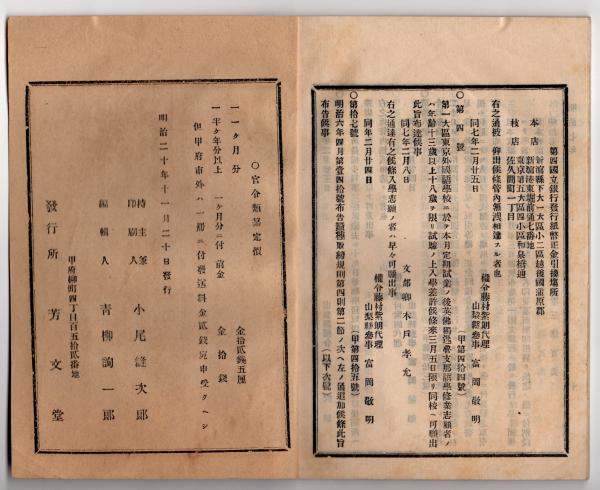 第四國立銀行發行紙幣正金引換塲所
本店　新潟縣下大一大區小二區越後國蒲原郡
新潟港東堀前通七番地
枝店　東京第五大區四小區和泉橋通
佐久間町一丁目
右之通被　仰出候條管內無洩相達スル者也
同七年二月廿五日
權令藤村紫朗代理
山梨縣參事　富岡敬明
○第四號　（甲第四拾四號）
第一大區東京外國語學校ニ於テ本月定期試業ノ後英佛獨魯支那語學修業志願者ノ
ハ年齡十三歲以上十八歲ヲ限リ試驗ノ上入學差許候條來三月五日限リ同校ヘ可願出
此旨布達候事
同七年二月八日
文部卿木戶孝允
右之通達有之候條入學志願ノ者ハ早々可願出事
同年二月廿四日
權令藤村紫朗代理
山梨縣參事　富岡敬明
○第拾七號　（甲第四拾五號）
明治六年四月第壹四拾號布告
種取締規則第四則第二節ノ次ヘ左ノ通追加候條此旨
布告候事　（以下次號）
○官令類纂定價
一一ヶ月分　金拾貳錢五厘
一半ヶ年分以上　一ヶ月分ニ付前金　金拾錢
但甲府市外ハ一冊ニ付遞送料金貳錢宛申受クヘシ
明治二十年十一月二十日發行
持主兼印刷人　小尾
次郎
編輯人　靑柳詢一郞
甲府柳町四丁目百五拾貳番地
發行所　芳文堂